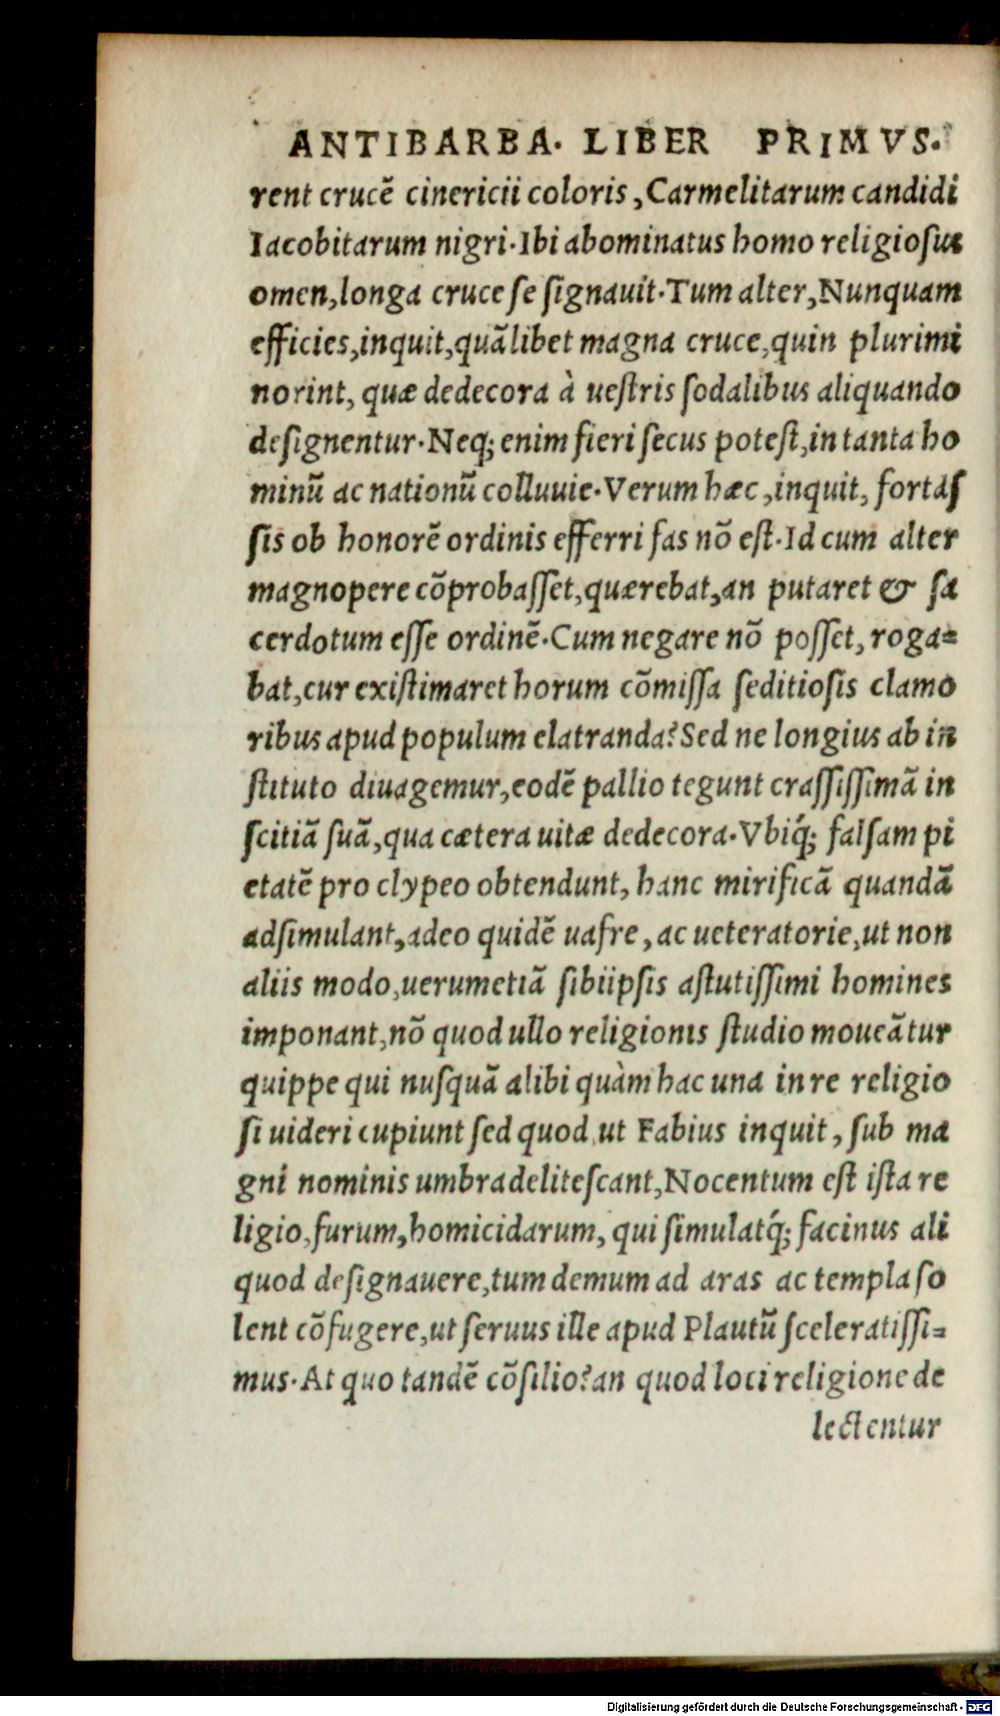 ANTIBARBA. LIBER PRIMVS.
rent crucẽ cinericii coloris, Carmelitarum candidi
Iacobitarum nigri. Ibi abominatus homo religiosus
omen, longa cruce se signauit. Tum alter, Nunquam
efficies, inquit, quãlibet magna cruce, quin plurimi
norint, quæ dedecora à uestris sodalibus aliquando
designentur. Neq; enim fieri secus potest, in tanta ho
minũ ac nationũ colluuie. Verum hæc, inquit, fortas
sis ob honorẽ ordinis efferri fas nõ est. Id cum alter
magnopere cõprobasset, quærebat, an putaret & sa
cerdotum esse ordinẽ. Cum negare nõ posset, roga=
bat, cur existimaret horum cõmissa seditiosis clamo
ribus apud populum elatranda? Sed ne longius ab in
stituto diuagemur, eodẽ pallio tegunt crassissimã in
scitiã suã, qua cætera uitæ dedecora. Vbiq́; falsam pi
etatẽ pro clypeo obtendunt, hanc mirificã quandã
adsimulant, adeo quidẽ uafre, ac ueteratorie, ut non
aliis modo, uerumetiã sibiipsis astutissimi homines
imponant, nõ quod ullo religionis studio moueãtur
quippe qui nusquã alibi quàm hac una in re religio
si uideri cupiunt sed quod, ut Fabius inquit, sub ma
gni nominis umbra delitescant, Nocentum est ista re
ligio, furum, homicidarum, qui simulatq́; facinus ali
quod designauere, tum demum ad aras ac templa so
lent cõfugere, ut seruus ille apud Plautũ sceleratissi=
mus. At quo tandẽ cõsilio? an quod loci religione de
lectentur
Digitalisierung gefördert durch die Deutsche Forschungsgemeinschaft - DFG